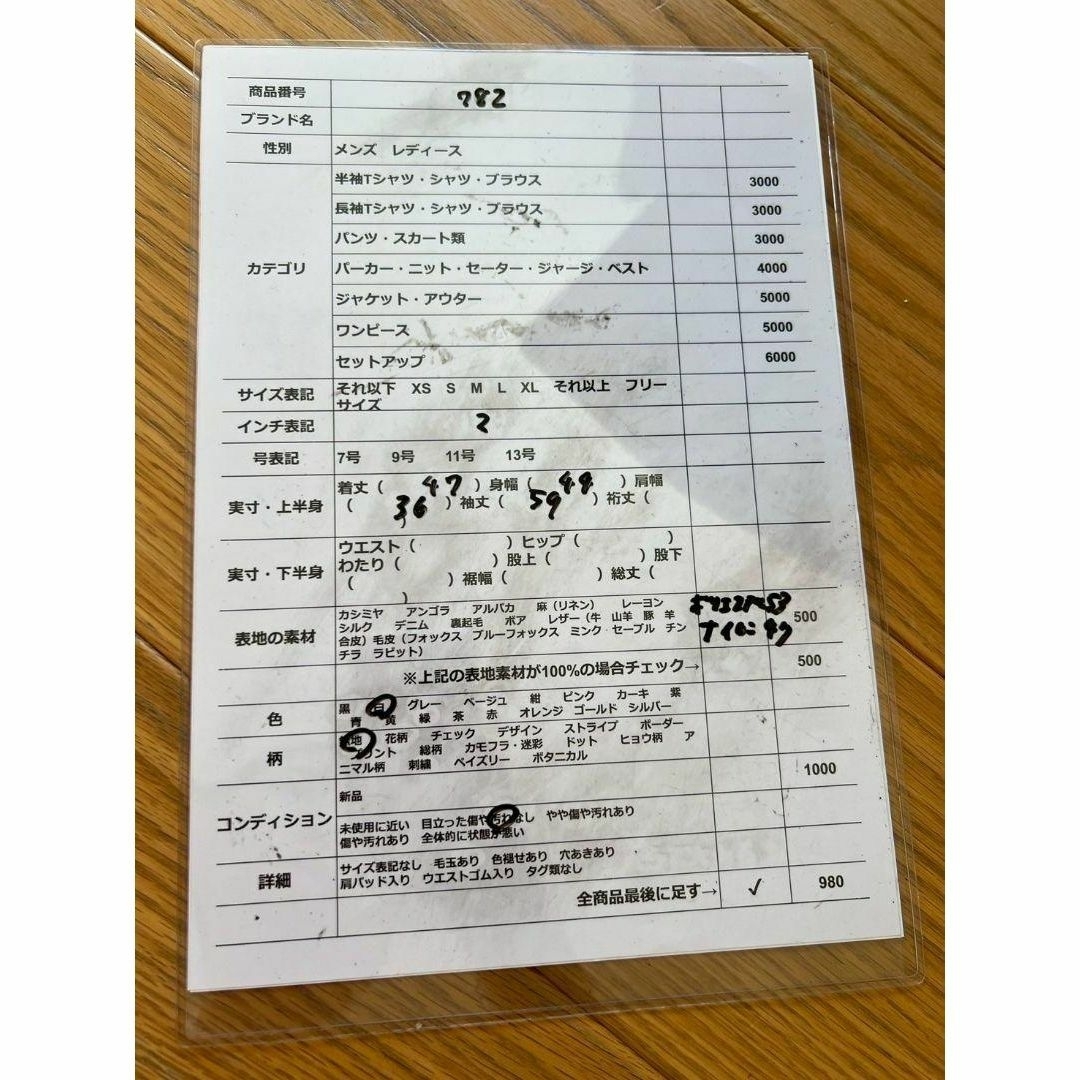 商品番号 782
ブランド名
性別 メンズ レディース
カテゴリ
半袖Tシャツ・シャツ・ブラウス 3000
長袖Tシャツ・シャツ・ブラウス 3000
パンツ・スカート類 3000
パーカー・ニット・セーター・ジャージ・ベスト 4000
ジャケット・アウター 5000
ワンピース 5000
セットアップ 6000
サイズ表記 それ以下 XS S M L XL それ以上 フリー
サイズ
インチ表記 2
号表記 7号 9号 11号 13号
実寸・上半身
着丈( 47 )身幅( 44 )肩幅
( 36 )袖丈( 59 )裄丈(
)
実寸・下半身
ウエスト( )ヒップ( )
わたり( )股上( )股下
( )裾幅( )総丈(
)
表地の素材
カシミヤ アンゴラ アルパカ 麻(リネン) レーヨン
シルク デニム 裏起毛 ボア レザー(牛 山羊 豚 羊
合皮)毛皮(フォックス ブルーフォックス ミンク セーブル チン
チラ ラビット)
ポリエステル53
ナイロン47
500
※上記の表地素材が100%の場合チェック→ 500
色
黒 白 グレー ベージュ 紺 ピンク カーキ 紫
青 黄 緑 茶 赤 オレンジ ゴールド シルバー
柄
無地 花柄 チェック デザイン ストライプ ボーダー
プリント 総柄 カモフラ・迷彩 ドット ヒョウ柄 ア
ニマル柄 刺繍 ペイズリー ボタニカル
コンディション
新品 1000
未使用に近い 目立った傷や汚れなし やや傷や汚れあり
傷や汚れあり 全体的に状態が悪い
詳細
サイズ表記なし 毛玉あり 色褪せあり 穴あきあり
肩パッド入り ウエストゴム入り タグ類なし
全商品最後に足す→ ✓ 980